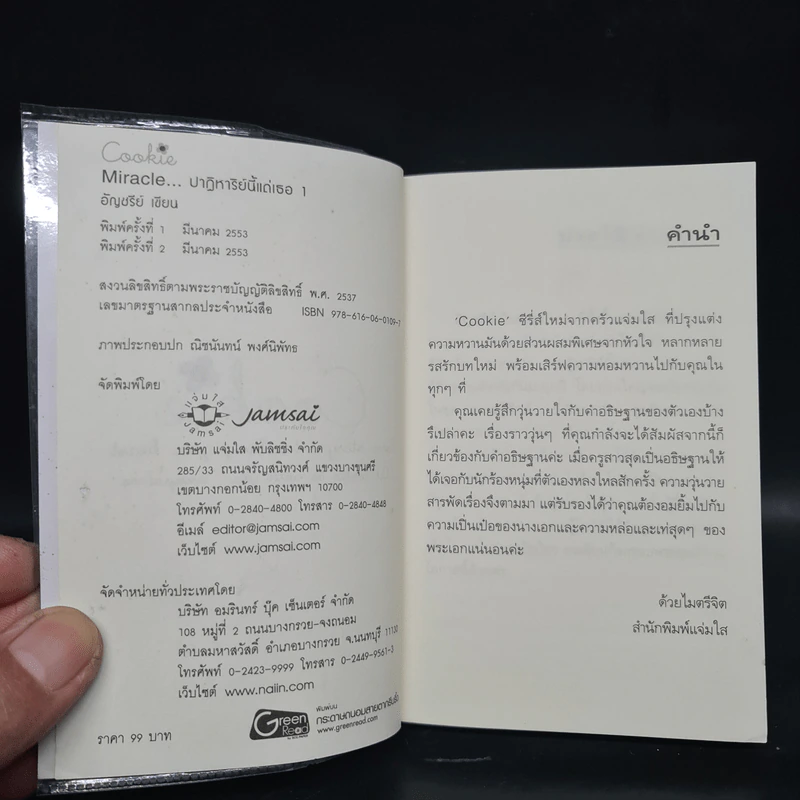 Cookie
Miracle... ปาฏิหาริย์นี้แด่เธอ 1
อัญชรีย์ เขียน
พิมพ์ครั้งที่ 1 มีนาคม 2553
พิมพ์ครั้งที่ 2 มีนาคม 2553
สงวนลิขสิทธิ์ตามพระราชบัญญัติลิขสิทธิ์ พ.ศ. 2537
เลขมาตรฐานสากลประจำหนังสือ ISBN 978-616-06-0109-7
ภาพประกอบปก ณิชนันทน์ พงศ์นิพัทธ
จัดพิมพ์โดย
แจ่มใส
JAMSAI
Jamsai
บริษัท แจ่มใส พับลิชชิ่ง จำกัด
285/33 ถนนจรัญสนิทวงศ์ แขวงบางขุนศรี
เขตบางกอกน้อย กรุงเทพฯ 10700
โทรศัพท์ 0-2840-4800 โทรสาร 0-2840-4848
อีเมล์ editor@jamsai.com
เว็บไซต์ www.jamsai.com
จัดจำหน่ายทั่วประเทศโดย
บริษัท อมรินทร์ บุ๊ค เซ็นเตอร์ จำกัด
108 หมู่ที่ 2 ถนนบางกรวย-จงถนอม
ตำบลมหาสวัสดิ์ อำเภอบางกรวย จ.นนทบุรี 11130
โทรศัพท์ 0-2423-9999 โทรสาร 0-2449-9561-3
เว็บไซต์ www.naiin.com
Green Read
พิมพ์บน
กระดาษถนอมสายตากรีนรี้ด
www.greenread.com
ราคา 99 บาท
คำนำ
'Cookie' ซีรี่ส์ใหม่จากครัวแจ่มใส ที่ปรุงแต่ง
ความหวานมันด้วยส่วนผสมพิเศษจากหัวใจ หลากหลาย
รสรักบทใหม่ พร้อมเสิร์ฟความหอมหวานไปกับคุณใน
ทุกๆ ที่
คุณเคยรู้สึกวุ่นวายใจกับคำอธิษฐานของตัวเองบ้าง
รึเปล่าคะ เรื่องราววุ่นๆ ที่คุณกำลังจะได้สัมผัสจากนี้ก็
เกี่ยวข้องกับคำอธิษฐานค่ะ เมื่อครูสาวสุดเปิ่นอธิษฐานให้
ได้เจอกับนักร้องหนุ่มที่ตัวเองหลงใหลสักครั้ง ความวุ่นวาย
สารพัดเรื่องจึงตามมา แต่รับรองได้ว่าคุณต้องอมยิ้มไปกับ
ความเป็นเป๋อของนางเอกและความหล่อและเท่สุดๆ ของ
พระเอกแน่นอนค่ะ
ด้วยไมตรีจิต
สำนักพิมพ์แจ่มใส